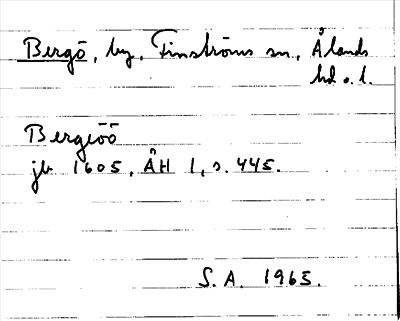 Bergö, by, Finströms sn, Ålands
hd o. l.
Bergeöö
jb 1605, ÅH 1, s. 445.
S.A. 1965.